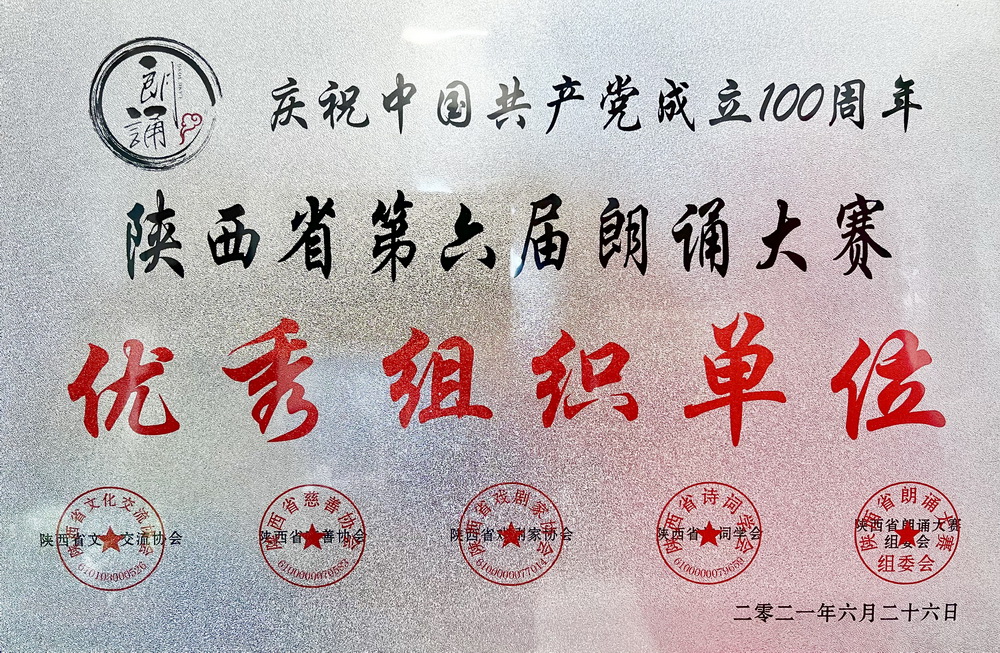 朗誦
庆祝中国共产党成立100周年
陕西省第六届朗诵大赛
优秀组织单位
陕西省文化交流协会
陕西省慈善协会
陕西省戏剧家协会
陕西省诗词学会
陕西省朗诵大赛
组委会
陕西省文化交流协会
6101030000526
陕西省慈善协会
陕西省戏剧家协会
6100000077014
陕西省诗词学会
陕西省朗诵大赛
组委会
二零二一年六月二十六日